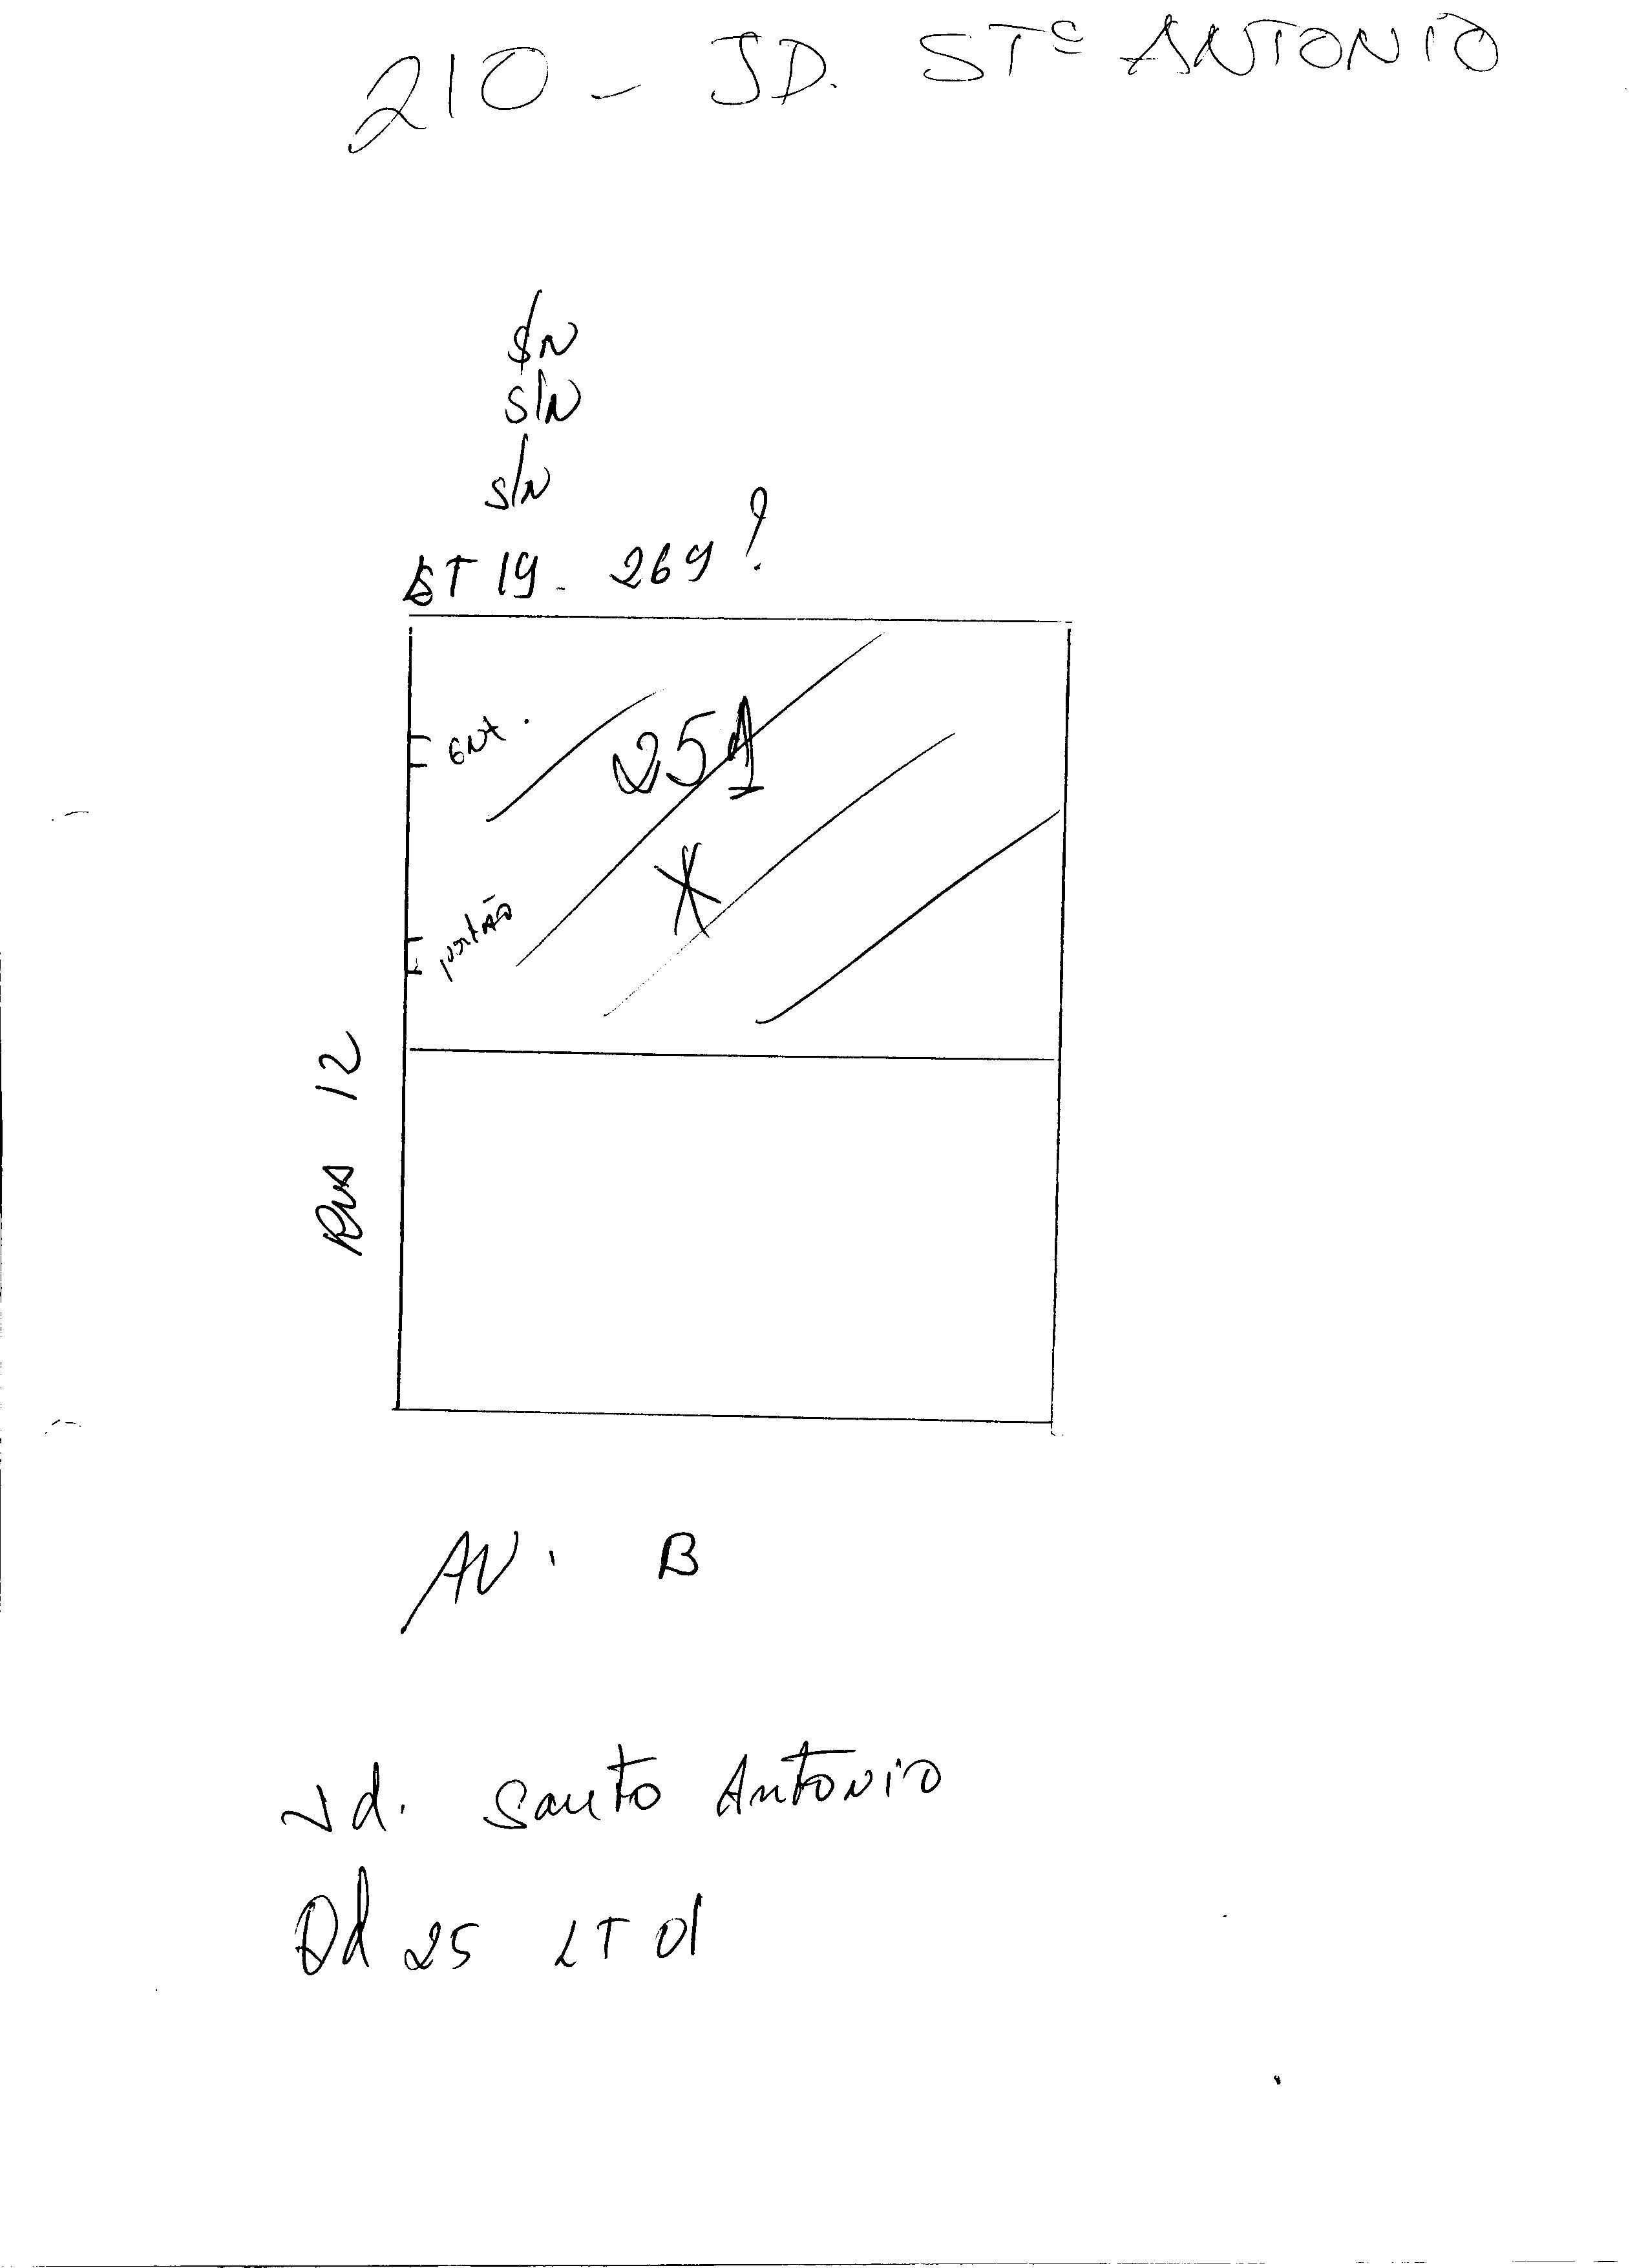 210 - JD. STº ANTONIO
S/N
S/N
S/N
LT 19 - 269?
ENt.
251
*
portão
RUA 12
AV. B
Jd. Santo Antonio
Qd 25 LT 01